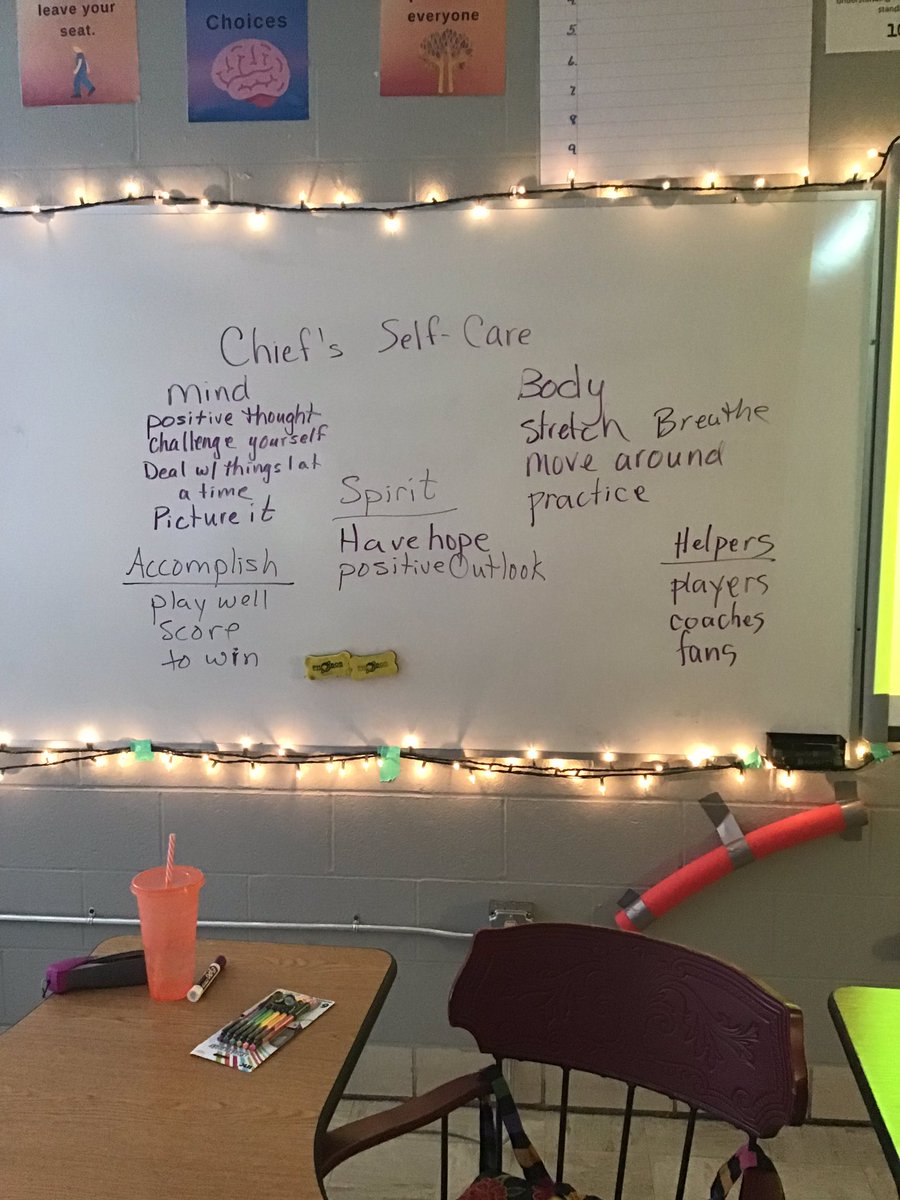 leave your
seat.
Choices
everyone
5
6.
7
8
9
10
Chief's Self-Care
Mind
positive thought
challenge yourself
Deal w/ things 1 at
a time
Picture it
Body
stretch Breathe
move around
practice
Spirit
Have hope
positive Outlook
Accomplish
play well
score
to win
Helpers
players
coaches
fans